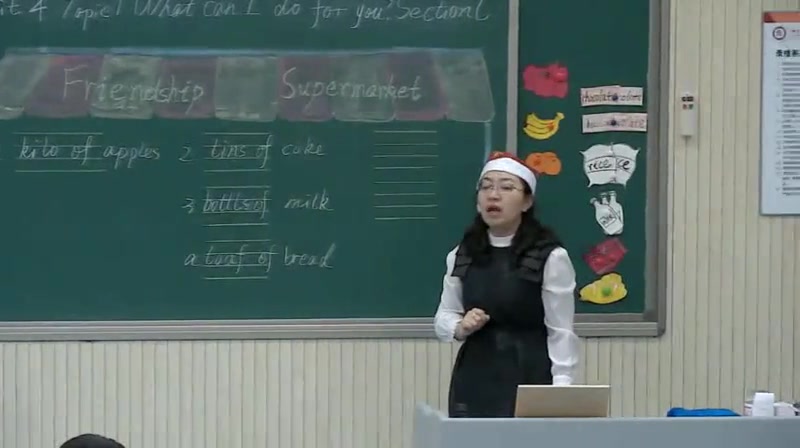 it 4 Topic 1 What can I do for you? Section C
Friendship Supermarket
kilo of apples
2 tins of coke
3 bottles of milk
a loaf of bread
rice
milk